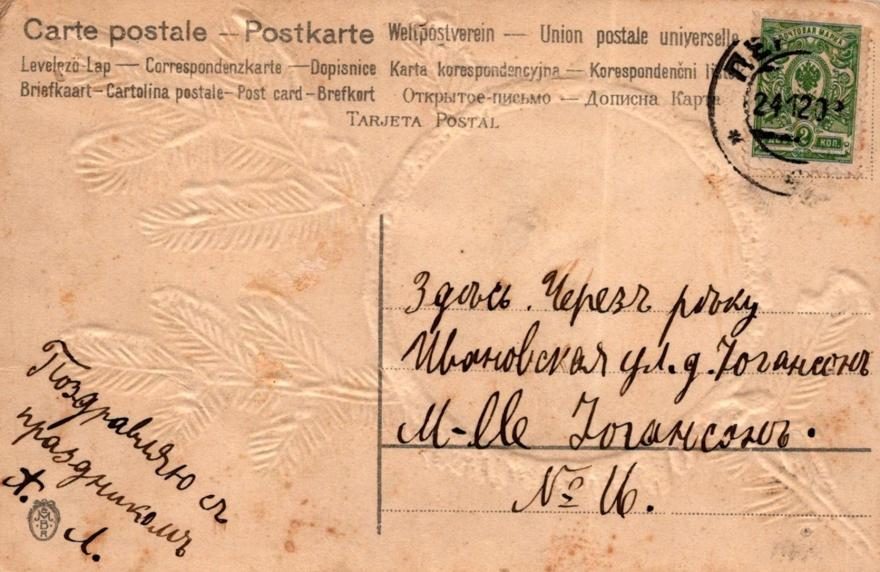 Carte postale — Postkarte Weltpostverein — Union postale universelle
Levelező-Lap — Correspondenzkarte — Dopisnice Karta korespondencyjna — Korespondenční
Briefkaart – Cartolina postale – Post card – Brefkort Открытое-письмо — Дописна Карта
TARJETA POSTAL
ПОЧТОВАЯ МАРКА
24 12 0
2
КОП.
Здѣсь. Черезъ рѣку
Ивановская ул. д. Іогансонъ
М-lle Іогансонъ.
№ 16.
Поздравляю съ
праздникомъ
А. Л.